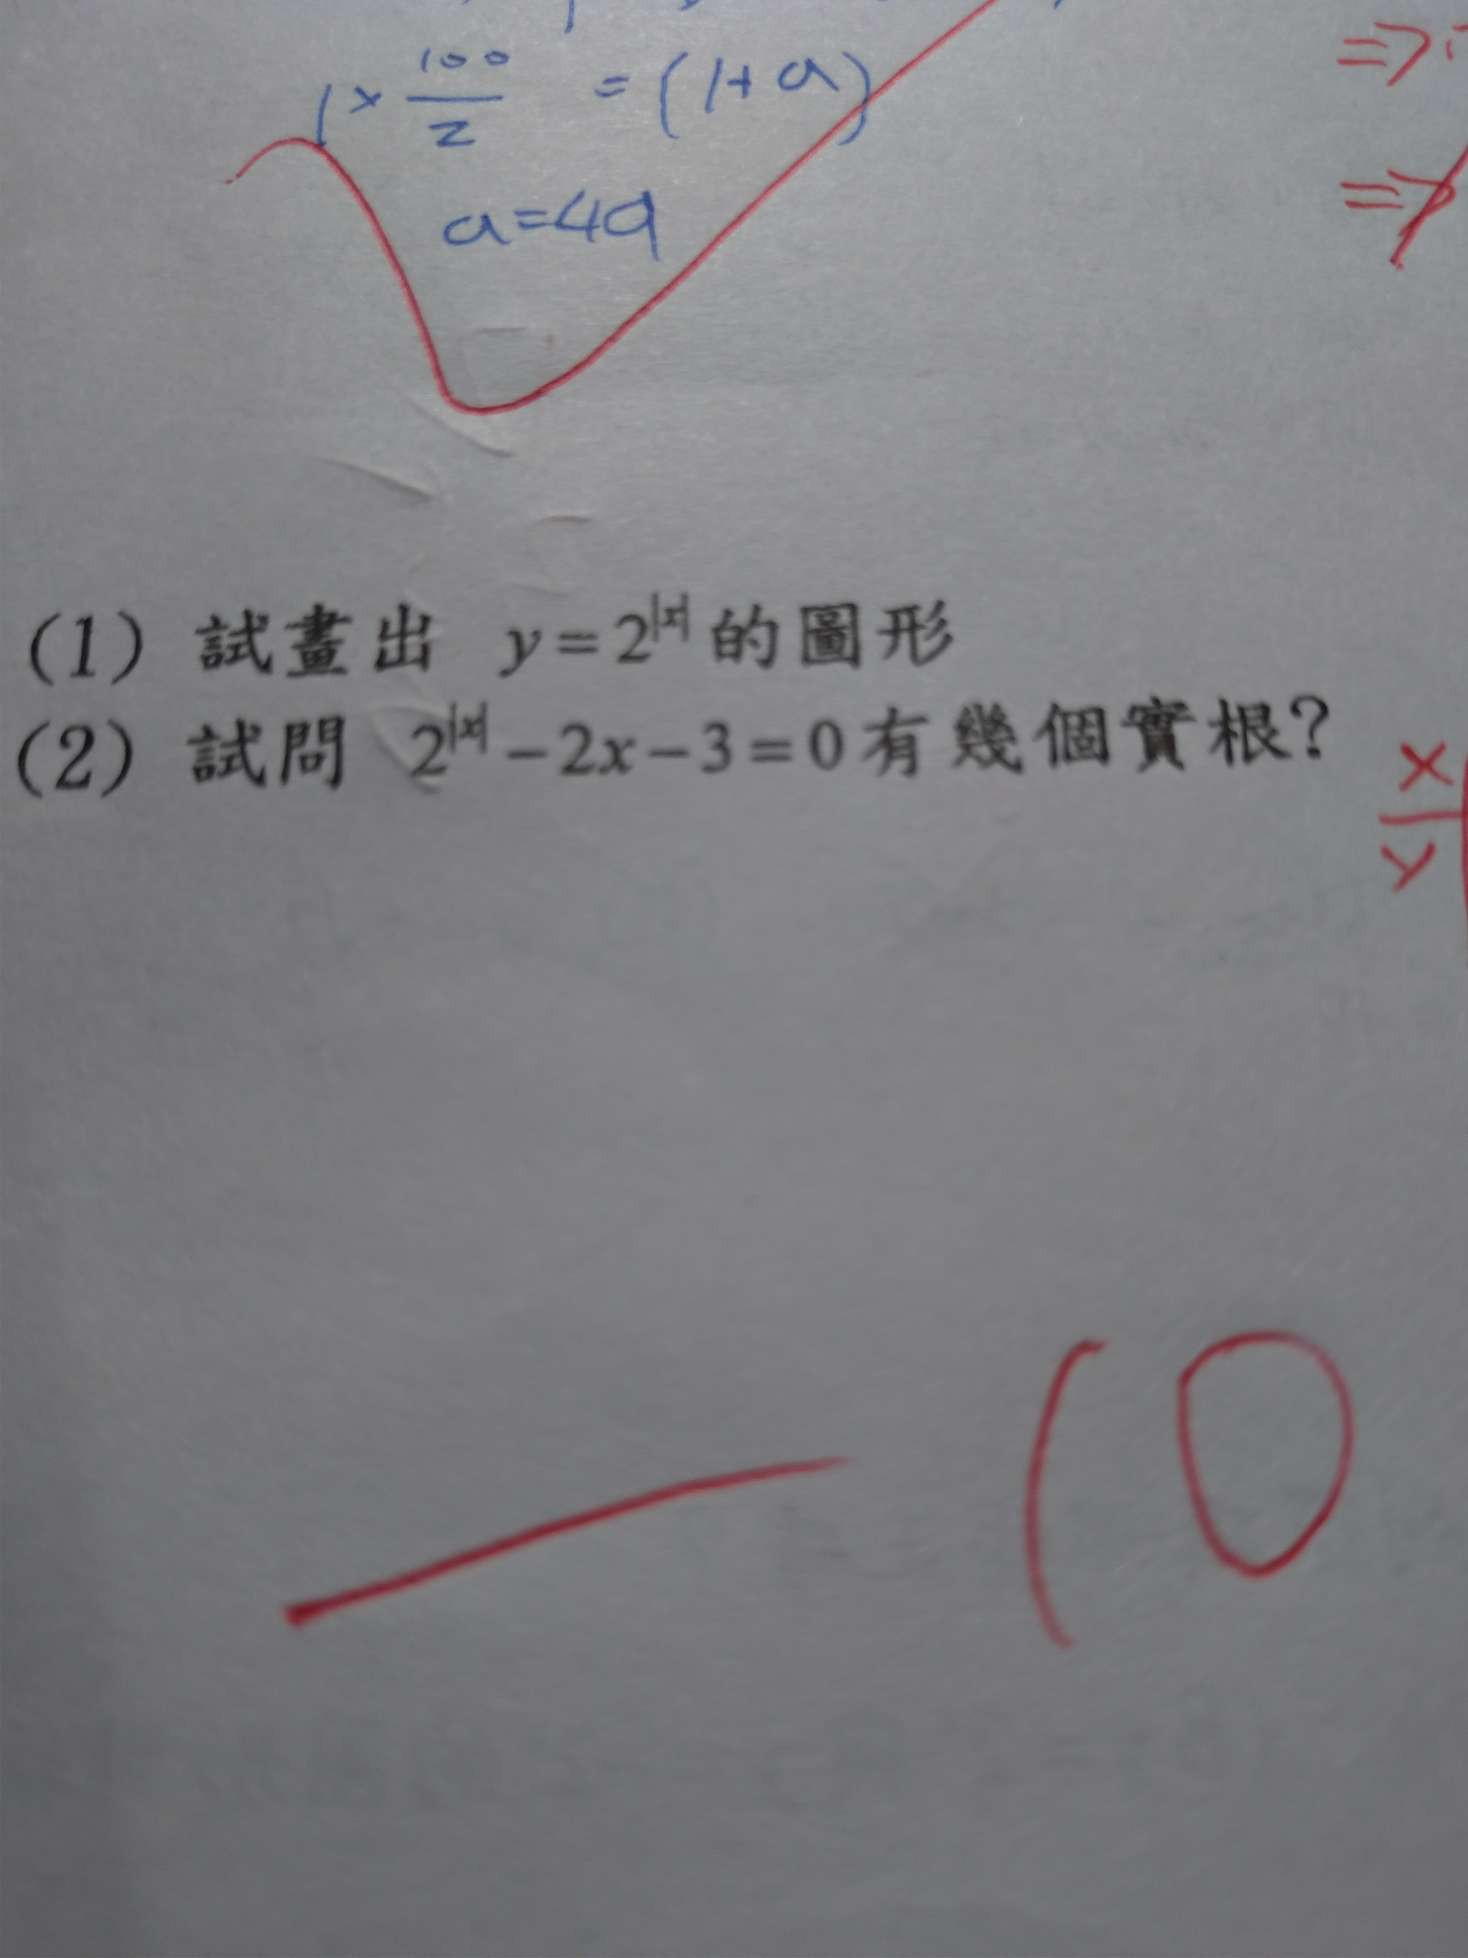 1 × 100/2 = (1 + a)
a = 49
=>
=>
(1) 試畫出 y = 2^|x| 的圖形
(2) 試問 2^|x| - 2x - 3 = 0 有幾個實根?
x
y
-10